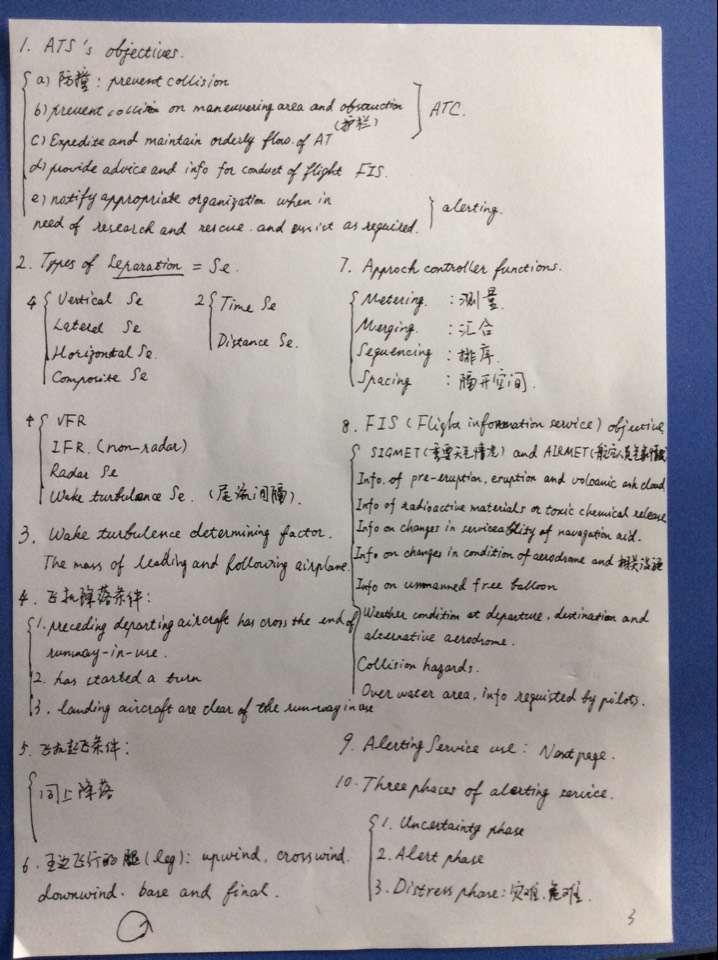 1. ATS's objectives.
a) 防撞: prevent collision
b) prevent collision on maneuvering area and obstruction
(护栏)
ATC.
c) Expedite and maintain orderly flow of AT
d) provide advice and info for conduct of flight FIS.
e) notify appropriate organization when in
need of research and rescue. and assist as required.
alerting.
2. Types of Separation = Se.
4 Vertical Se
Lateral Se
Horizontal Se.
Composite Se
2 Time Se
Distance Se.
4 VFR
IFR. (non-radar)
Radar Se
Wake turbulence Se. (尾流间隔).
3. Wake turbulence determining factor.
The mass of leading and following airplane.
4. 飞机降落条件:
1. preceding departing aircraft has cross the end of
runway-in-use.
2. has started a turn
3. landing aircraft are clear of the run-way in use
5. 飞机起飞条件:
同上降落
6. 五边飞行的腿 (leg): upwind, crosswind.
downwind. base and final.
7. Approch controller functions.
Metering. : 测量.
Merging. : 汇合
Sequencing : 排序.
Spacing : 隔开空间.
8. FIS (Flight information service) objective
SIGMET (重要天气情况) and AIRMET
Info. of pre-eruption, eruption and volcanic ash cloud
Info of radioactive materials or toxic chemical release
Info on changes in serviceability of navagation aid.
Info on changes in condition of aerodrome and 相关设施
Info on unmanned free balloon
Weather condition at departure, destination and
alternative aerodrome.
Collision hazards.
Over water area, info requisted by pilots.
9. Alerting Service use: Next page.
10. Three phases of alerting service.
1. Uncertainty phase
2. Alert phase
3. Distress phase: 灾难. 危难.
3